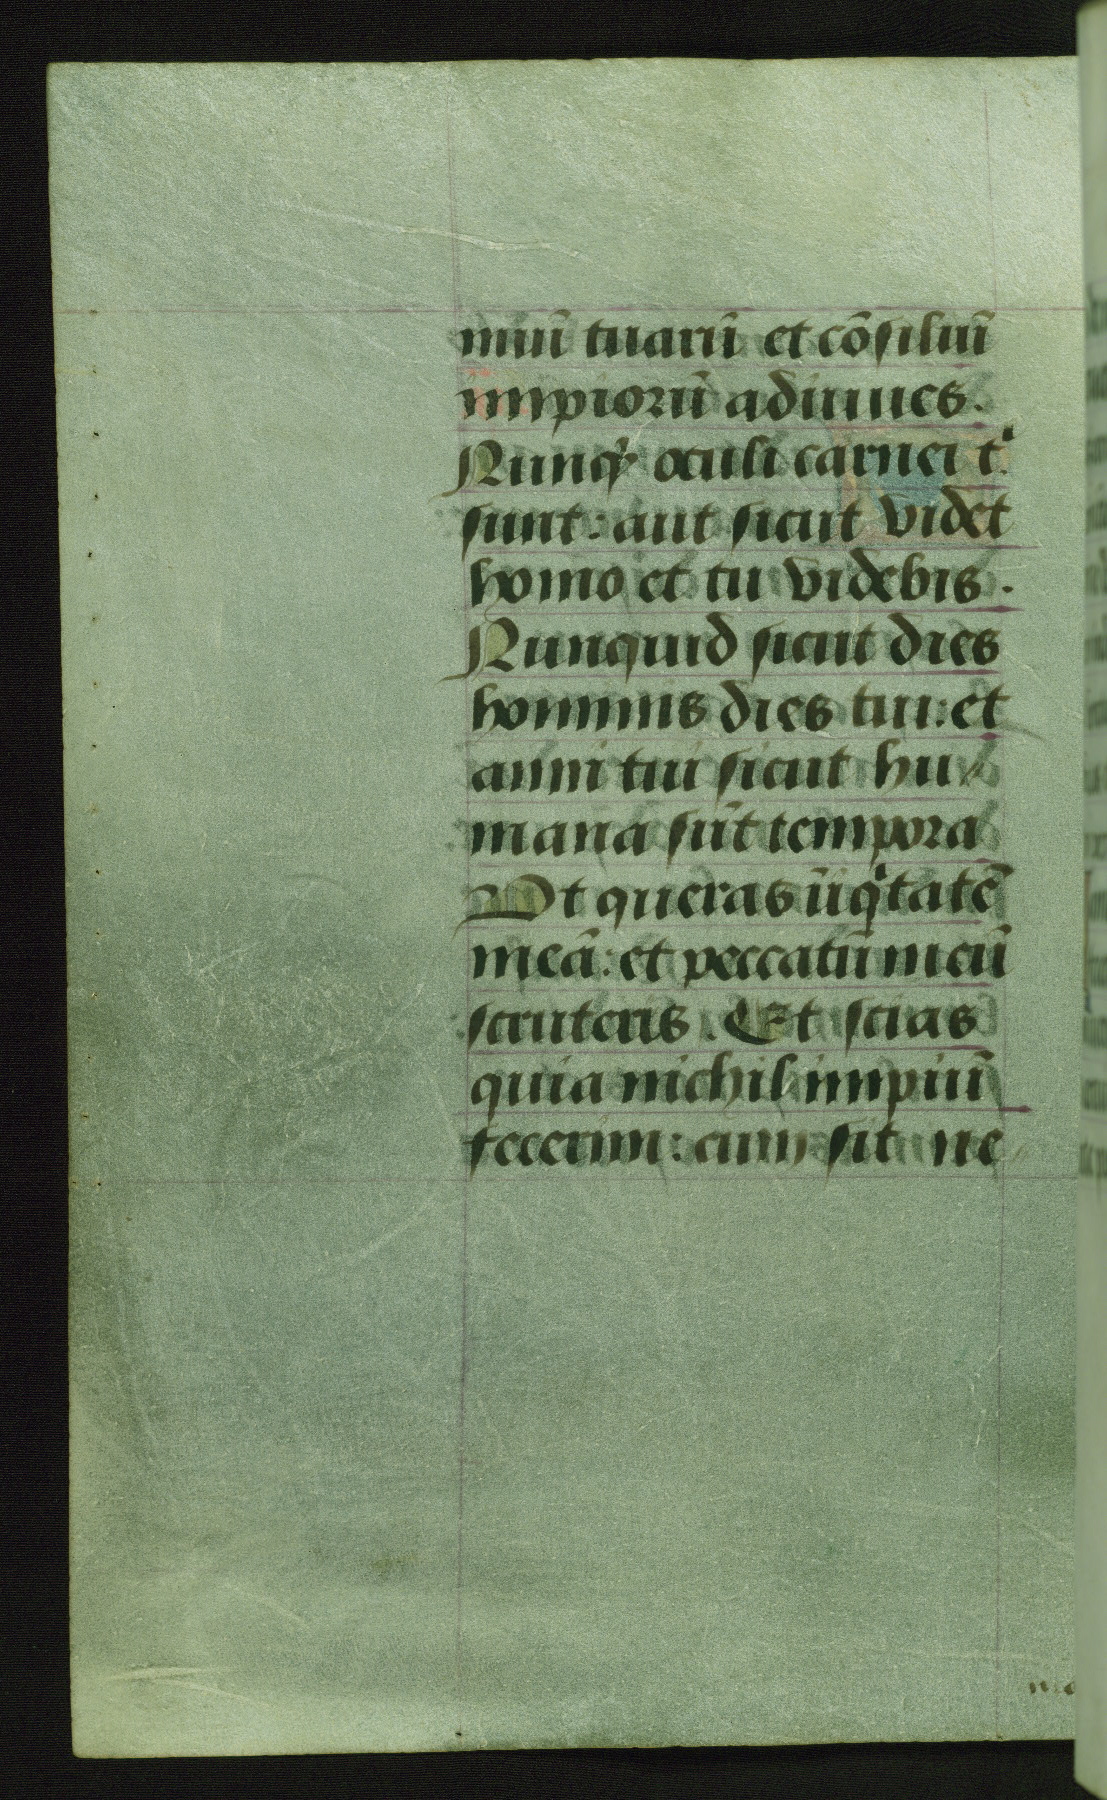 nuū tuarū et cōsiliū
impiorū adiuues.
Nunqͥ oculi carnei tͥ
sunt: aut sicut videt
homo et tu videbis.
Nunquid sicut dies
hominis dies tui: et
anni tui sicut hu
mana sūt tempora
Vt queras iiqͥtatē
meā: et peccatū meū
scruteris. Et scias
quia nichil impiū
fecerim: cum sit ne